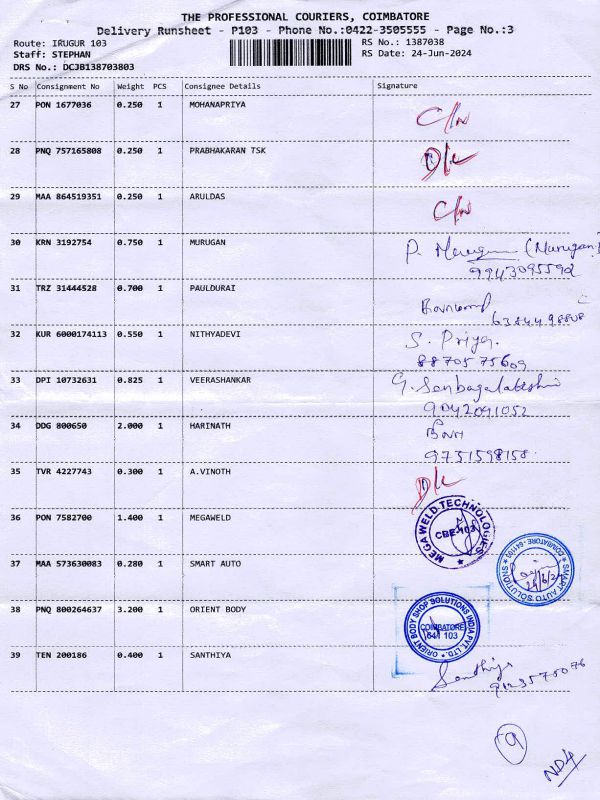 THE PROFESSIONAL COURIERS, COIMBATORE
Delivery Runsheet - P103 - Phone No.:0422-3505555 - Page No.:3
Route: IRUGUR 103
RS No.: 1387038
Staff: STEPHAN
RS Date: 24-Jun-2024
DRS No.: DCJB138703803
S No Consignment No Weight PCS Consignee Details Signature
27 PON 1677036 0.250 1 MOHANAPRIYA
28 PNQ 757165808 0.250 1 PRABHAKARAN TSK D/L
29 MAA 864519351 0.250 1 ARULDAS
30 KRN 3192754 0.750 1 MURUGAN P. Murugan (Murugan)
9943095592
31 TRZ 31444528 0.700 1 PAULDURAI
6384498808
32 KUR 6000174113 0.550 1 NITHYADEVI S. Priya.
8870575609
33 DPI 10732631 0.825 1 VEERASHANKAR
9042091052
34 DDG 800650 2.000 1 HARINATH
9751598158
35 TVR 4227743 0.300 1 A.VINOTH D/L
36 PON 7582700 1.400 1 MEGAWELD
MEGA WELD TECHNOLOGIES
CBE-103
37 MAA 573630083 0.280 1 SMART AUTO
SMART AUTO SOLUTIONS
COIMBATORE - 641103
38 PNQ 800264637 3.200 1 ORIENT BODY
ORIENT BODY SHOP SOLUTIONS INDIA PVT. LTD.
COIMBATORE
641 103
39 TEN 200186 0.400 1 SANTHIYA Santhiya
9123575076
9